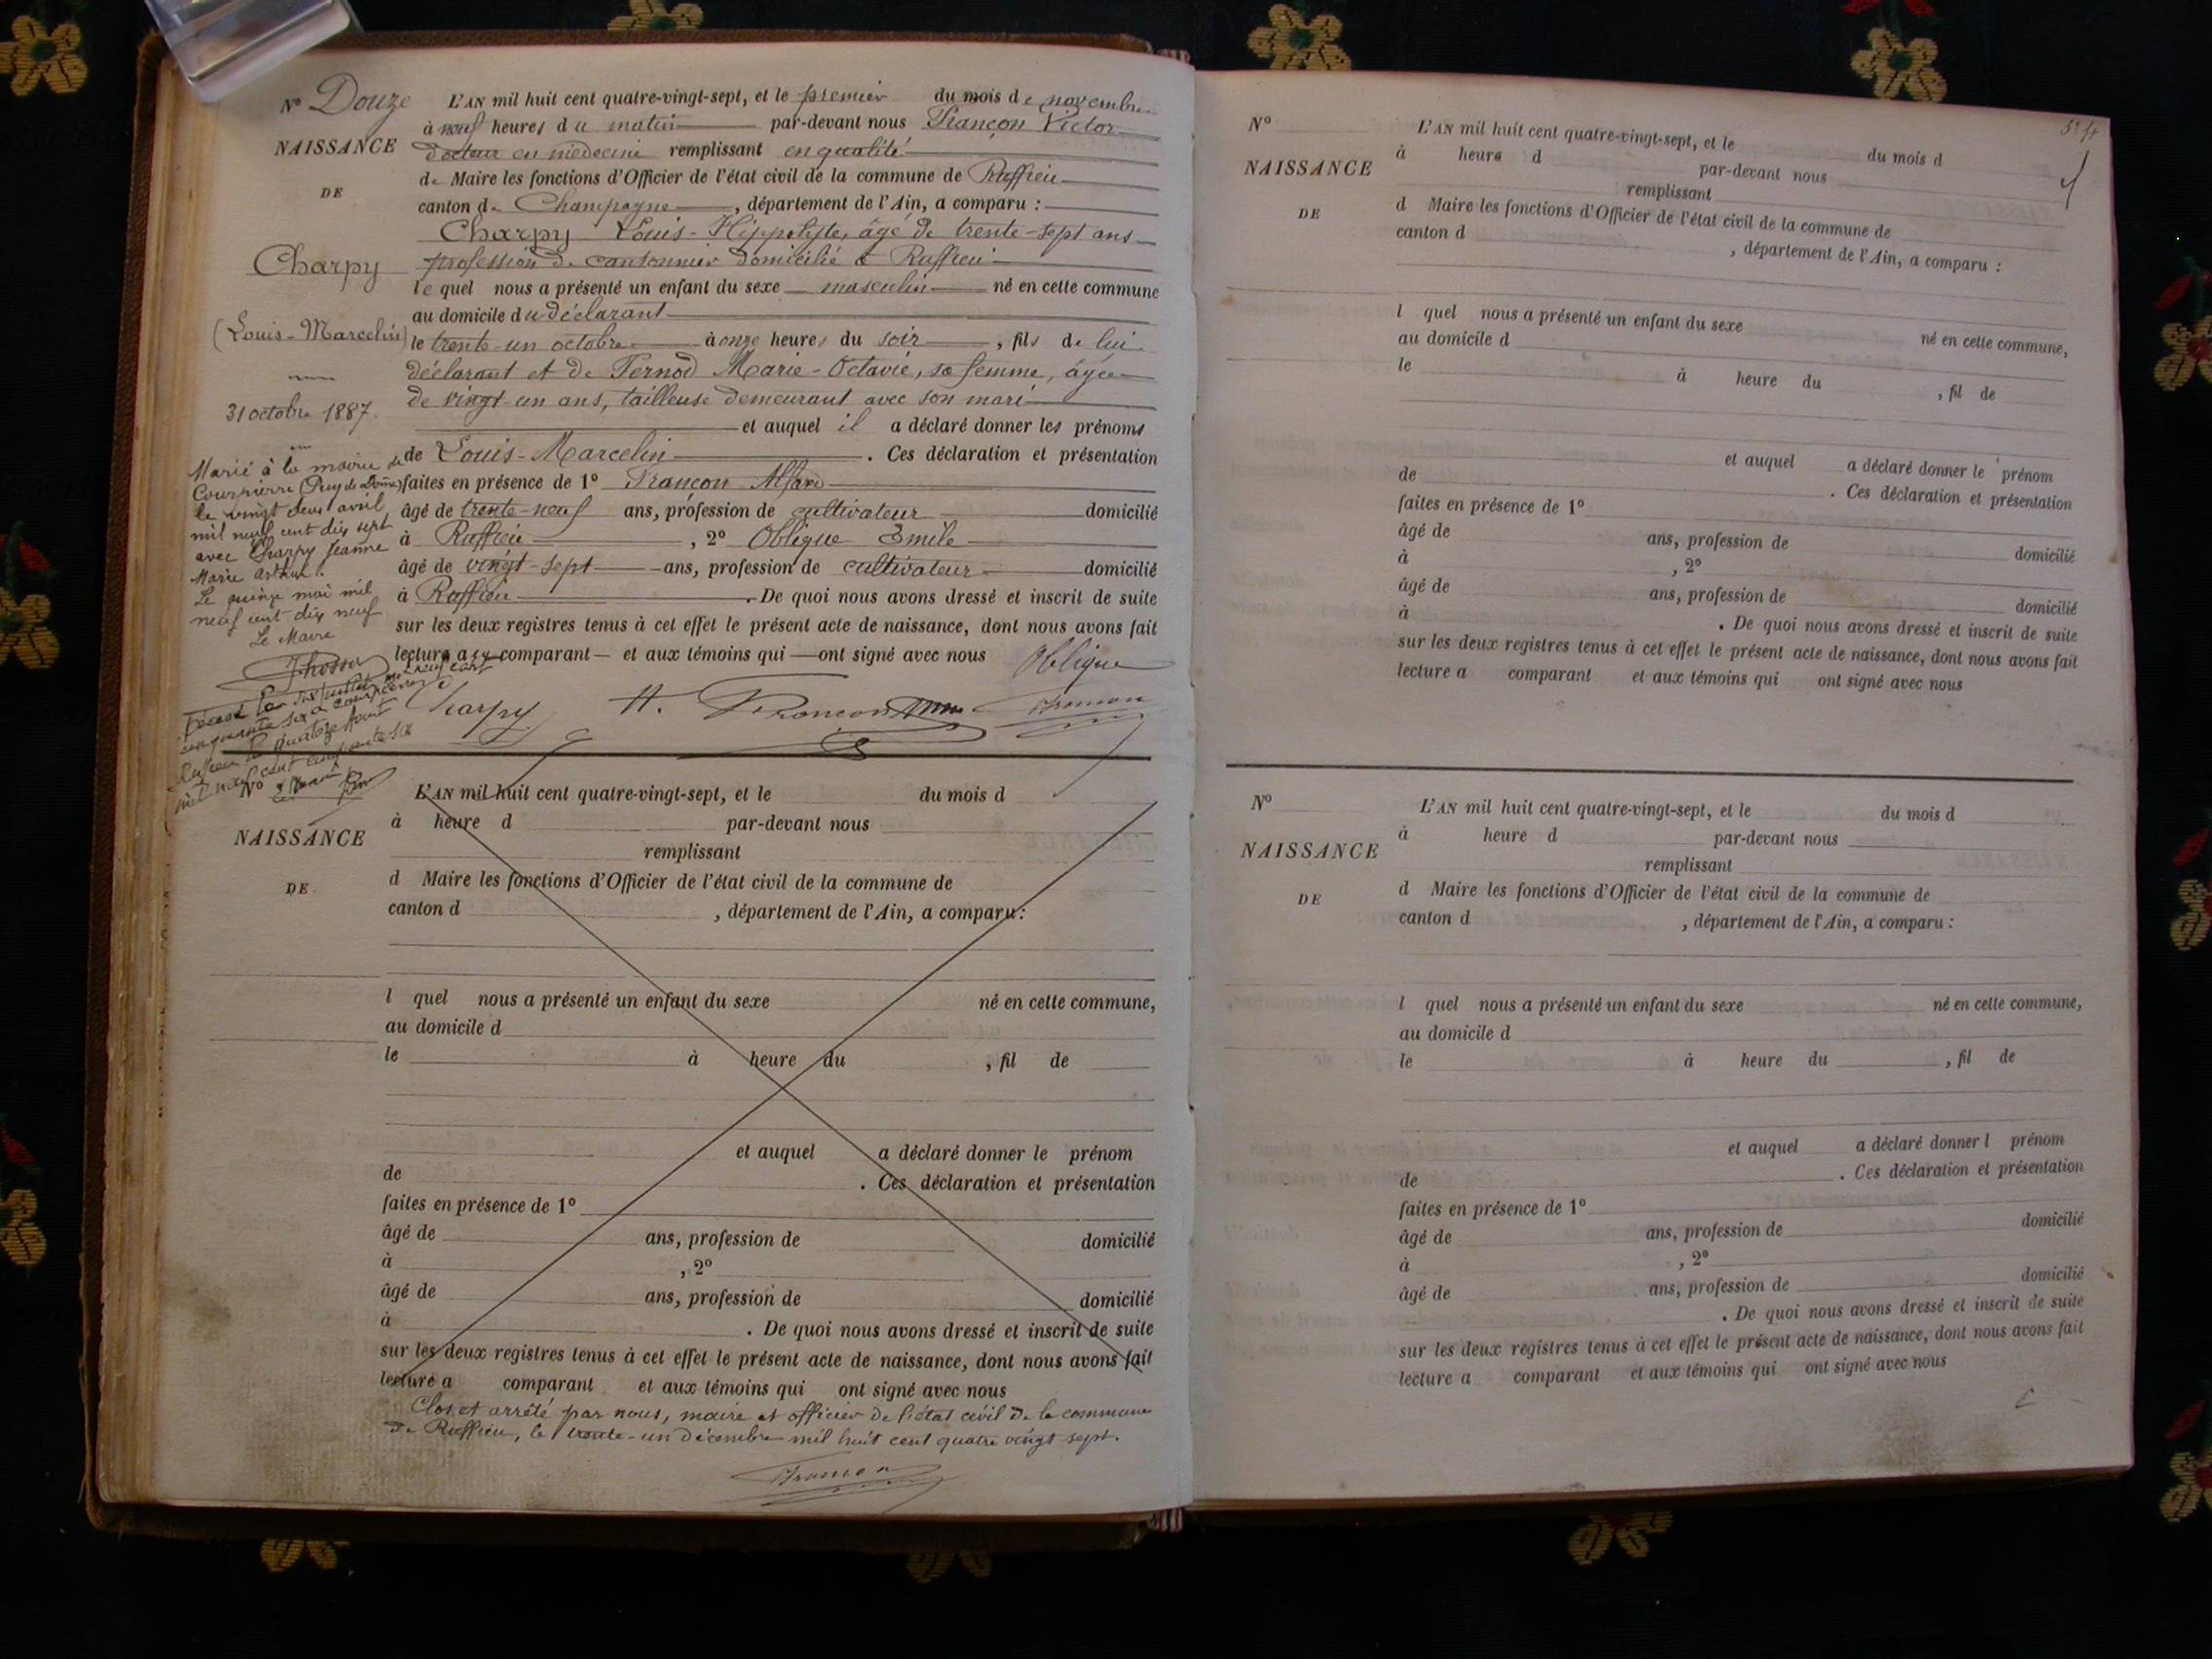 N° Douze
NAISSANCE
DE
Charpy
(Louis-Marcelin)
31 octobre 1887.
Marié à la mairie de
Courpierre (Puy de Dôme)
le vingt deux avril
mil neuf cent dix sept
avec Charpy Jeanne
Marie
Le quinze mai mil
neuf cent dix neuf
Le Maire
L'AN mil huit cent quatre-vingt-sept, et le premier du mois de novembre
à neuf heures du matin par-devant nous Françon Victor
docteur en médecine remplissant en qualité
de Maire les fonctions d'Officier de l'état civil de la commune de Ruffieu
canton de Champagne, département de l'Ain, a comparu :
Charpy Louis-Hippolyte, âgé de trente-sept ans
profession de cantonnier domicilié à Ruffieu
lequel nous a présenté un enfant du sexe masculin né en cette commune
au domicile du déclarant
le trente-un octobre à onze heures du soir, fils de lui
déclarant et de Pernod Marie-Octavie, sa femme, âgée
de vingt-un ans, tailleuse demeurant avec son mari
et auquel il a déclaré donner les prénoms
de Louis-Marcelin. Ces déclaration et présentation
faites en présence de 1° Françon
âgé de trente-neuf ans, profession de cultivateur domicilié
à Ruffieu, 2° Oblique Emile
âgé de vingt-sept ans, profession de cultivateur domicilié
à Ruffieu. De quoi nous avons dressé et inscrit de suite
sur les deux registres tenus à cet effet le présent acte de naissance, dont nous avons fait
lecture au comparant et aux témoins qui ont signé avec nous Oblique
Charpy H. Françon
N°
NAISSANCE
DE
L'AN mil huit cent quatre-vingt-sept, et le du mois d
à heure d par-devant nous
remplissant
d Maire les fonctions d'Officier de l'état civil de la commune de
canton d , département de l'Ain, a comparu :
l quel nous a présenté un enfant du sexe né en cette commune,
au domicile d
le à heure du , fil de
et auquel a déclaré donner le prénom
de . Ces déclaration et présentation
faites en présence de 1°
âgé de ans, profession de domicilié
à , 2°
âgé de ans, profession de domicilié
à . De quoi nous avons dressé et inscrit de suite
sur les deux registres tenus à cet effet le présent acte de naissance, dont nous avons fait
lecture a comparant et aux témoins qui ont signé avec nous
Clos et arrêté par nous, maire et officier de l'état civil de la commune
de Ruffieu, le trente-un décembre mil huit cent quatre vingt sept.
N°
NAISSANCE
DE
L'AN mil huit cent quatre-vingt-sept, et le du mois d
à heure d par-devant nous
remplissant
d Maire les fonctions d'Officier de l'état civil de la commune de
canton d , département de l'Ain, a comparu :
l quel nous a présenté un enfant du sexe né en cette commune,
au domicile d
le à heure du , fil de
et auquel a déclaré donner le prénom
de . Ces déclaration et présentation
faites en présence de 1°
âgé de ans, profession de domicilié
à , 2°
âgé de ans, profession de domicilié
à . De quoi nous avons dressé et inscrit de suite
sur les deux registres tenus à cet effet le présent acte de naissance, dont nous avons fait
lecture a comparant et aux témoins qui ont signé avec nous
N°
NAISSANCE
DE
L'AN mil huit cent quatre-vingt-sept, et le du mois d
à heure d par-devant nous
remplissant
d Maire les fonctions d'Officier de l'état civil de la commune de
canton d , département de l'Ain, a comparu :
l quel nous a présenté un enfant du sexe né en cette commune,
au domicile d
le à heure du , fil de
et auquel a déclaré donner l prénom
de . Ces déclaration et présentation
faites en présence de 1°
âgé de ans, profession de domicilié
à , 2°
âgé de ans, profession de domicilié
à . De quoi nous avons dressé et inscrit de suite
sur les deux registres tenus à cet effet le présent acte de naissance, dont nous avons fait
lecture a comparant et aux témoins qui ont signé avec nous